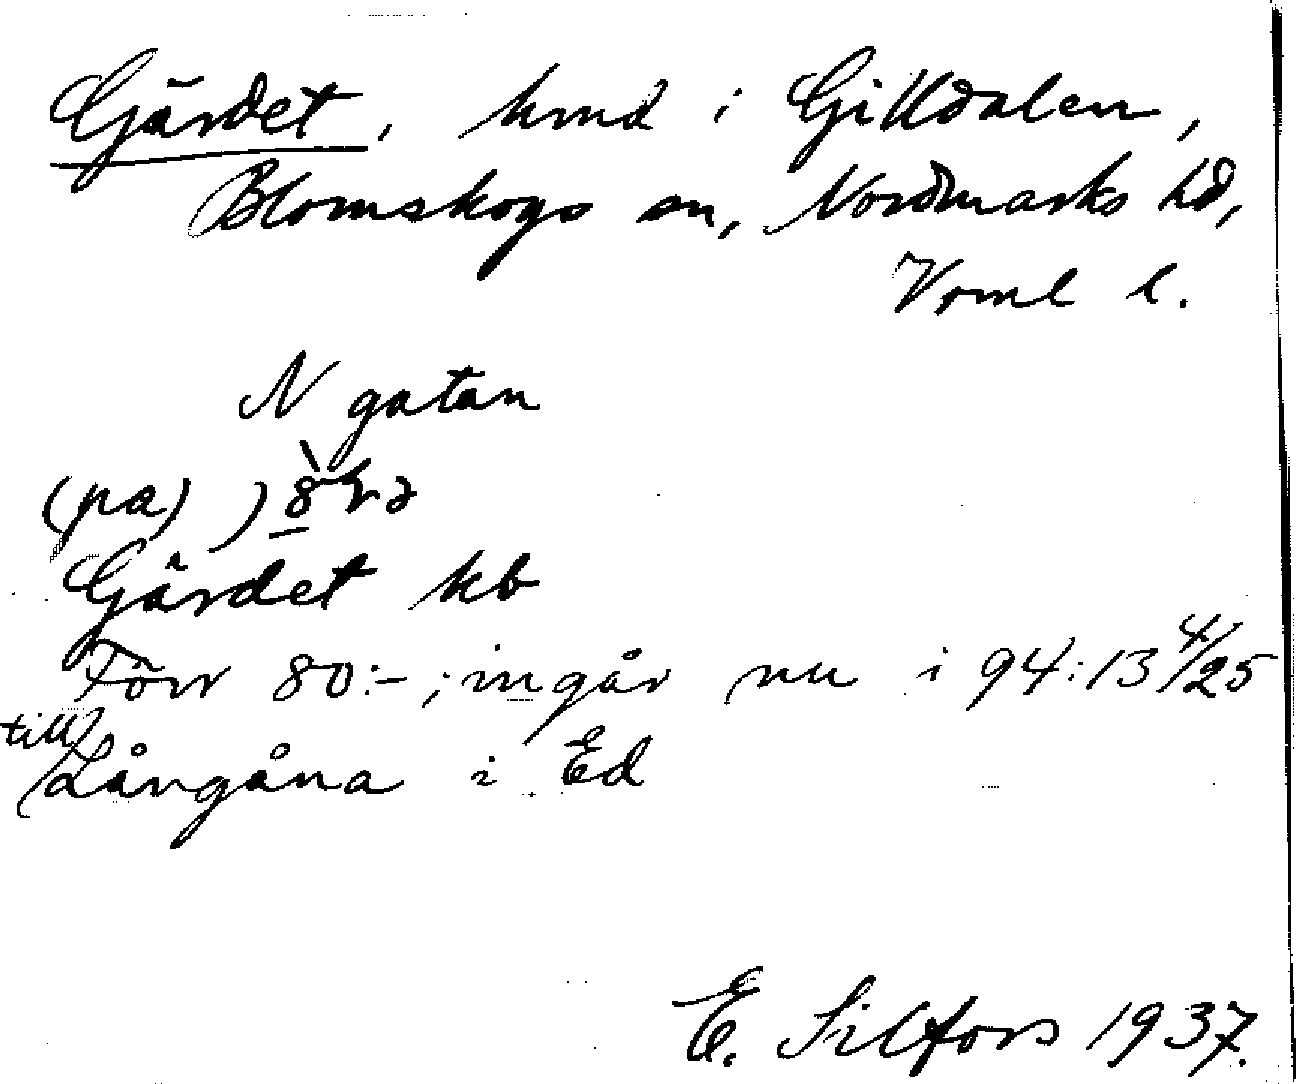 Gärdet, hmd i Gilldalen,
Blomskogs sn, Nordmarks hd,
Vrml l.
N gatan
(pa)
Gärdet kb
Förr 80:-; ingår nu i 94:13 4/25
till Långåna i Ed
E. Silfors 1937.